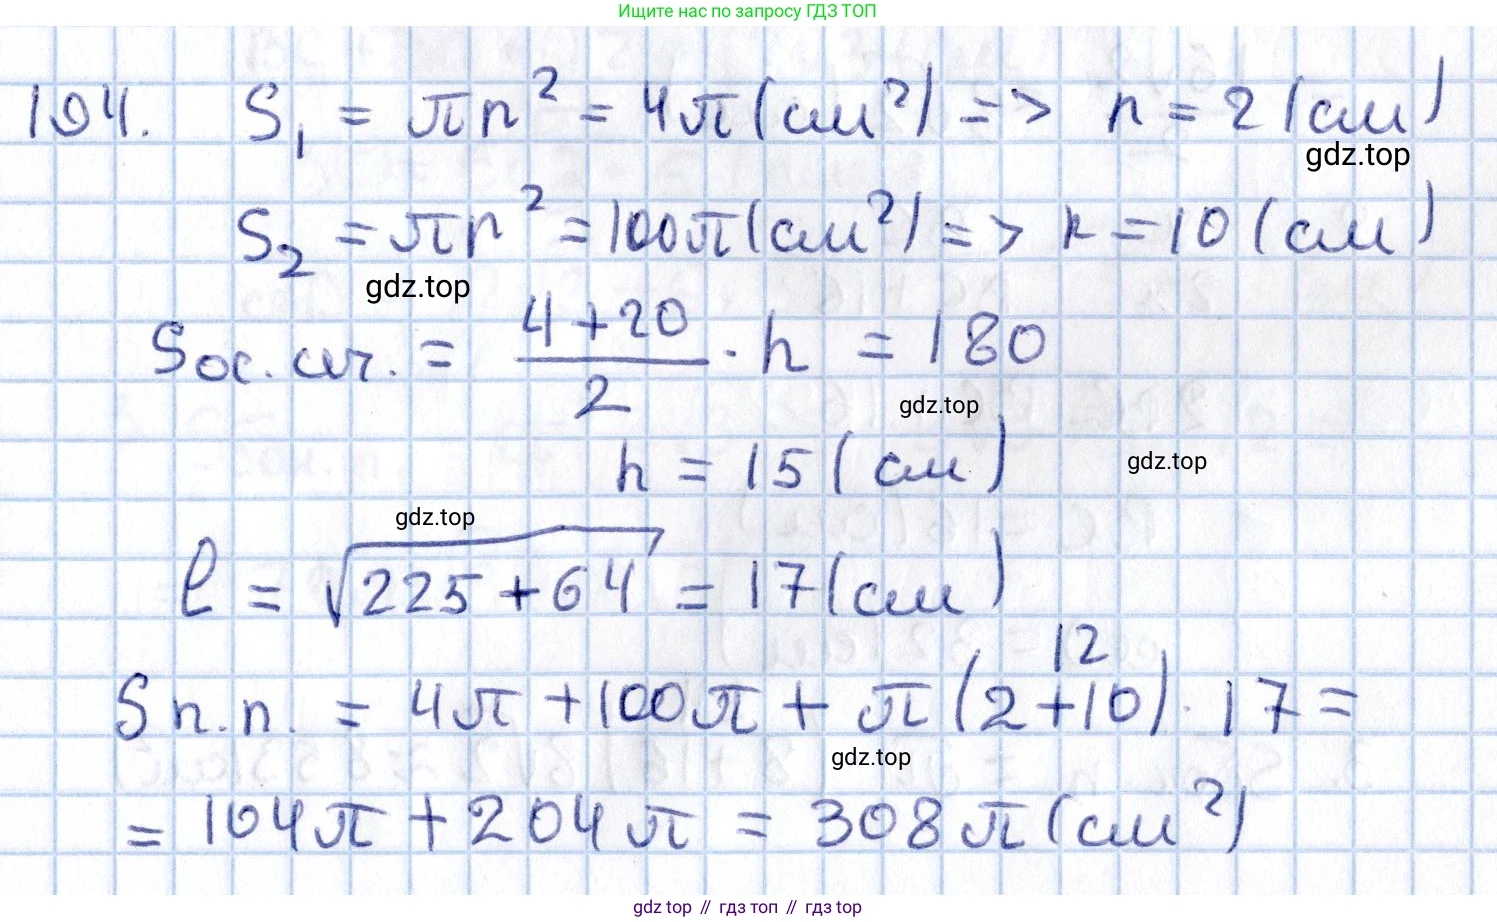 Ищите нас по запросу ГДЗ ТОП
104. S₁ = πr² = 4π (см²) => r = 2 (см)
gdz.top
S₂ = πr² = 100π (см²) => r = 10 (см)
gdz.top
Sос.сеч. = (4+20)/2 · h = 180
gdz.top
h = 15 (см)
gdz.top
gdz.top
l = √(225+64) = 17 (см)
12
Sп.п. = 4π + 100π + π (2+10) · 17 =
gdz.top
= 104π + 204π = 308π (см²)
gdz.top // гдз топ // гдз top